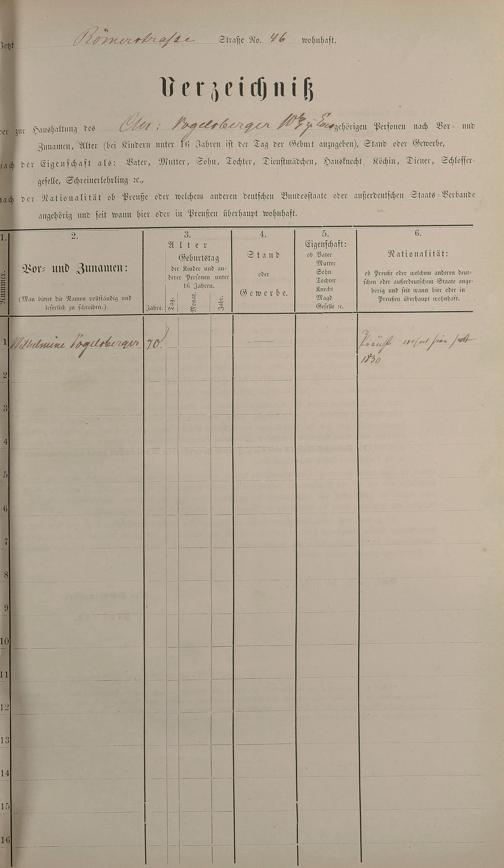 Jetzt Römerstraße Straße No. 46 wohnhaft.
Verzeichniß
der zur Haushaltung des Chr: Vogelsberger gehörigen Personen nach Vor- und
Zunamen, Alter (bei Kindern unter 16 Jahren ist der Tag der Geburt anzugeben), Stand oder Gewerbe,
nach der Eigenschaft als: Vater, Mutter, Sohn, Tochter, Dienstmädchen, Hausknecht, Köchin, Diener, Schlosser-
geselle, Schreinerlehrling ꝛc.,
nach der Nationalität ob Preuße oder welchem anderen deutschen Bundesstaate oder außerdeutschen Staats-Verbande
angehörig und seit wann hier oder in Preußen überhaupt wohnhaft.
1.
Nummer.
2.
Vor- und Zunamen:
(Man bittet die Namen vollständig und
leserlich zu schreiben.)
3.
Alter
Geburtstag
der Kinder und an-
derer Personen unter
16 Jahren.
Jahre.
Tag.
Monat.
Jahr.
4.
Stand
oder
Gewerbe.
5.
Eigenschaft:
ob Vater
Mutter
Sohn
Tochter
Knecht
Magd
Geselle ꝛc.
6.
Nationalität:
ob Preuße oder welchem anderen deut-
schen oder außerdeutschen Staate ange-
hörig und seit wann hier oder in
Preußen überhaupt wohnhaft.
1 Wilhelmine Vogelsberger 70 Preuße hier seit
1830
2
3
4
5
6
7
8
9
10
11
12
13
14
15
16